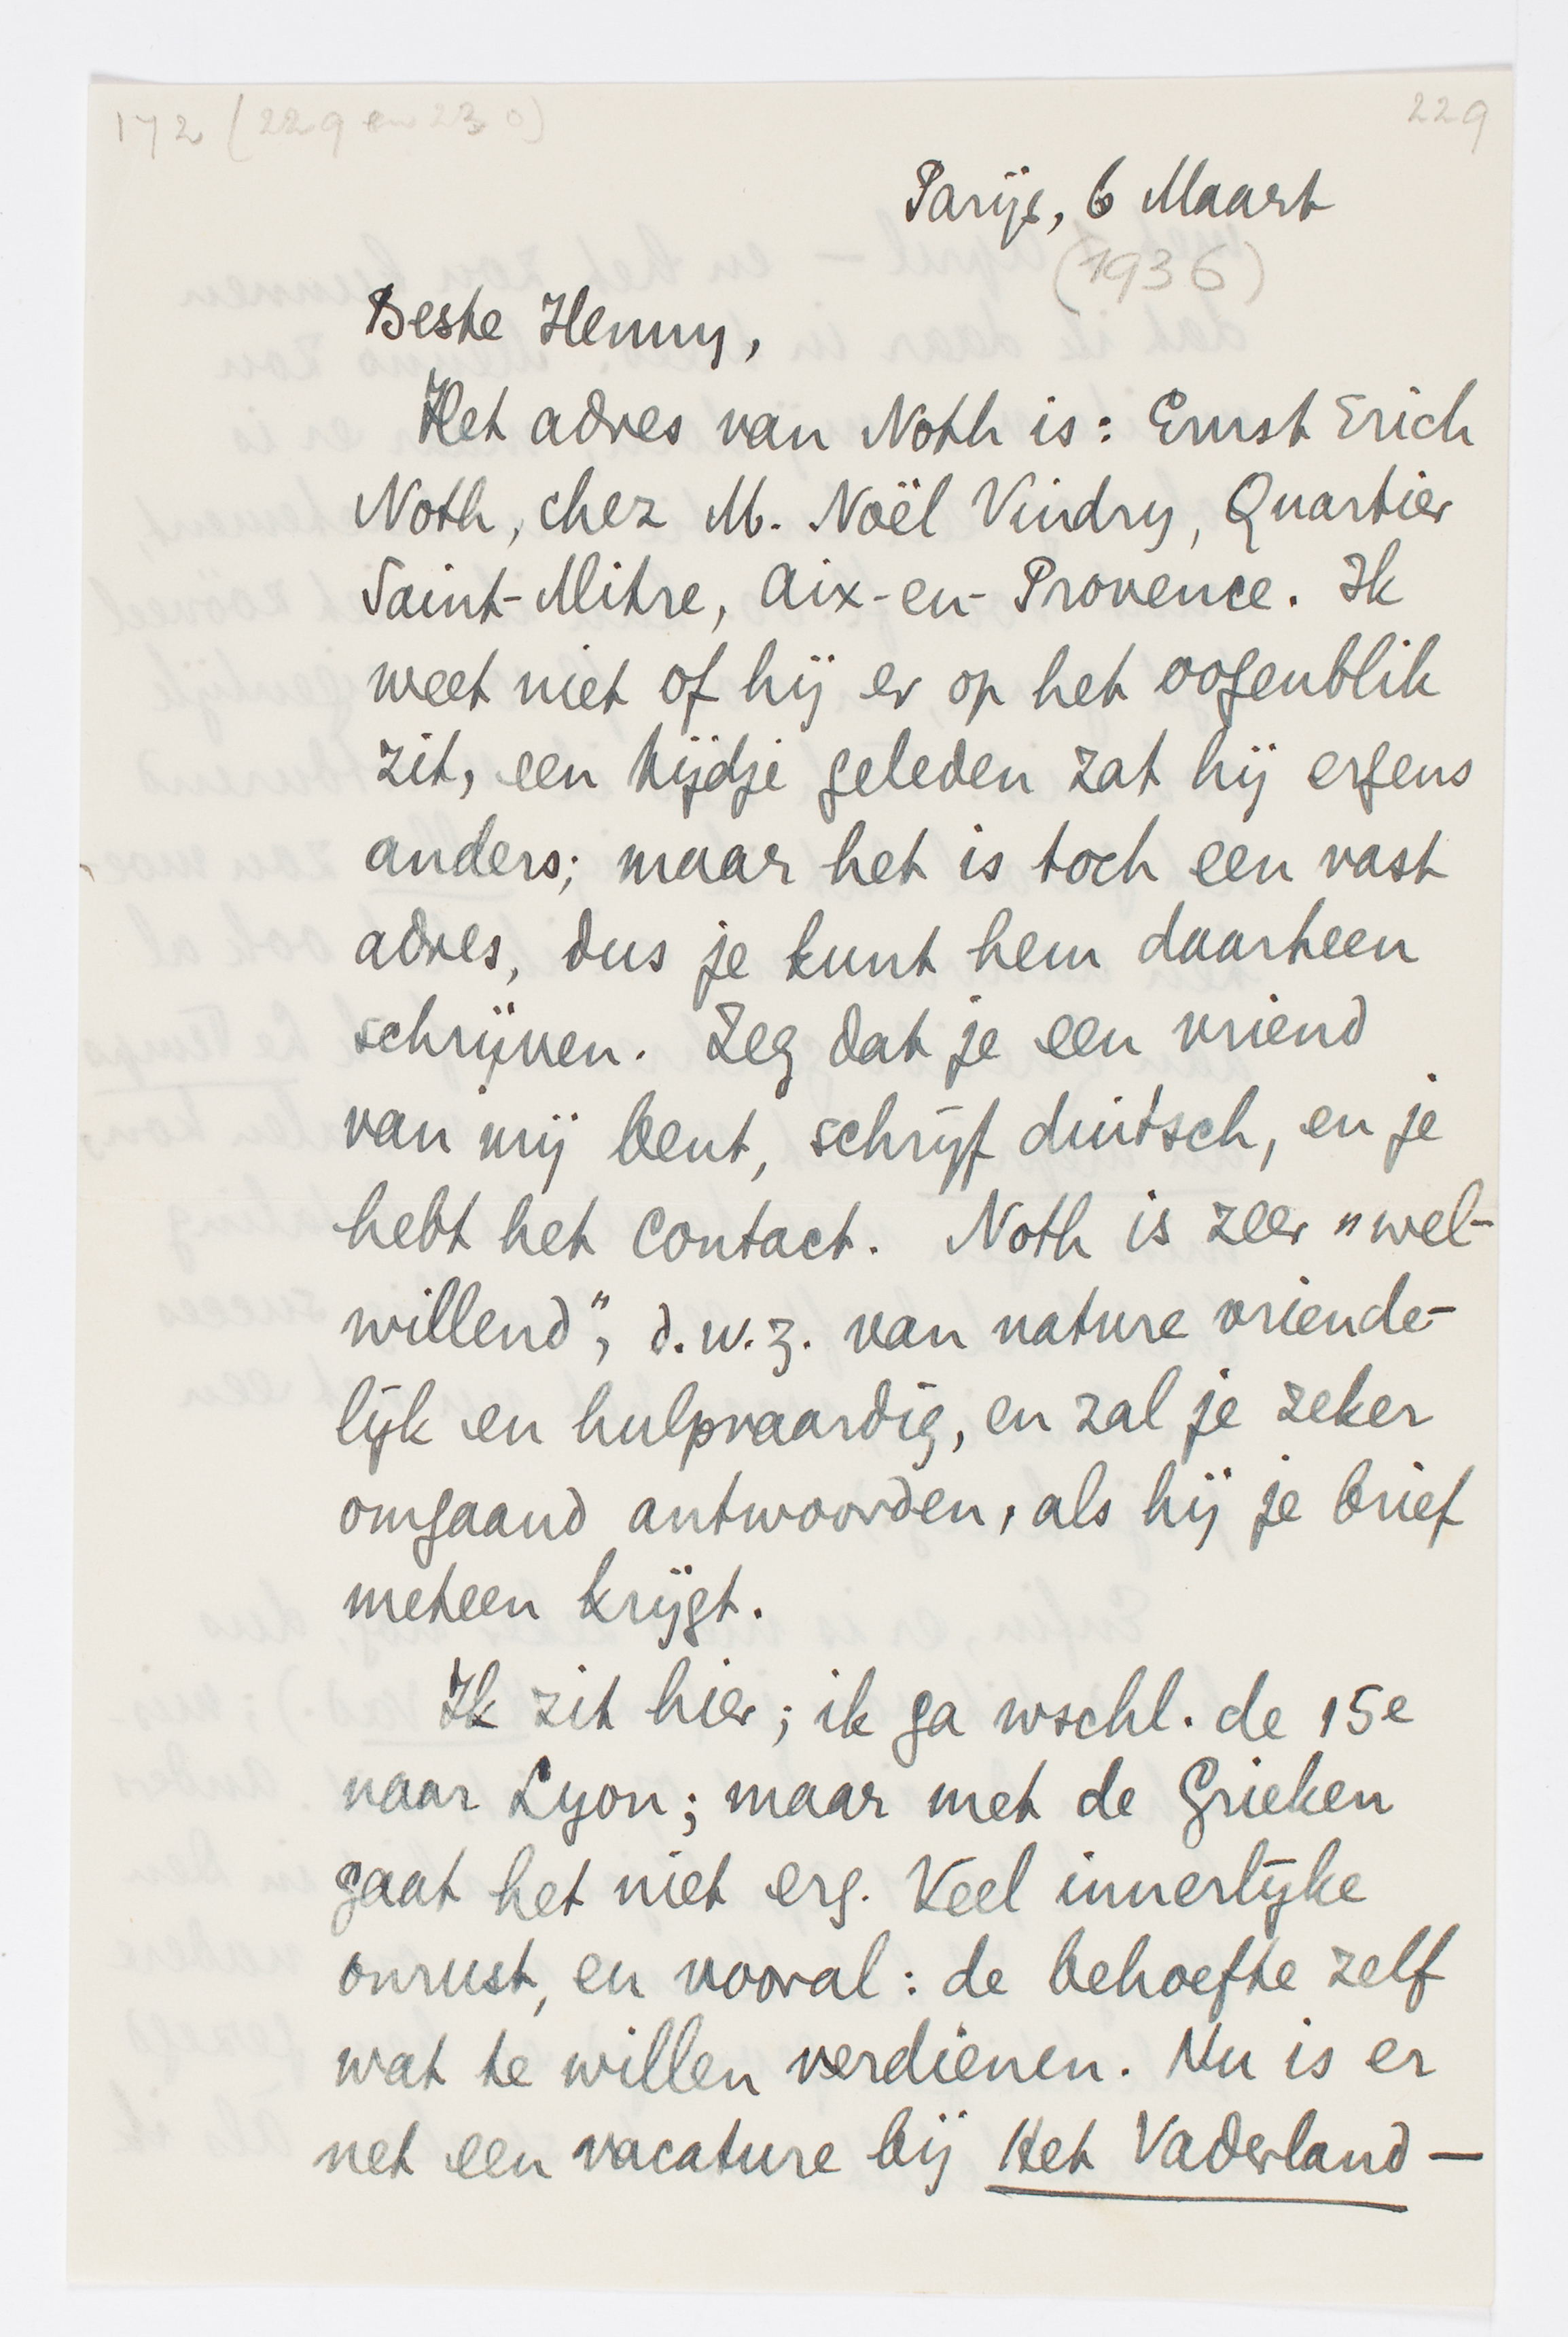 172 (229 en 230)
229
Parijs, 6 Maart
(1936)
Beste Henny,
Het adres van Noth is: Ernst Erich
Noth, chez M. Noël Vindry, Quartier
Saint-Mitre, Aix-en-Provence. Ik
weet niet of hij er op het oogenblik
zit, een tijdje geleden zat hij ergens
anders; maar het is toch een vast
adres, dus je kunt hem daarheen
schrijven. Zeg dat je een vriend
van mij bent, schrijf duitsch, en je
hebt het contact. Noth is zeer "wel-
willend", d.w.z. van nature vriende-
lijk en hulpvaardig, en zal je zeker
omgaand antwoorden, als hij je brief
meteen krijgt.
Ik zit hier; ik ga wschl. de 15e
naar Lyon; maar met de Grieken
gaat het niet erg. Veel innerlijke
onrust, en vooral: de behoefte zelf
wat te willen verdienen. Nu is er
net een vacature bij Het Vaderland —